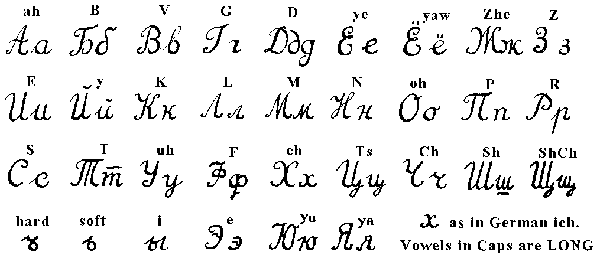 ah B V G D ye yaw Zhe Z
Аа Бб Вв Гг Ддд Ее Ёё Жж Зз
E y K L M N oh P R
Ии Йй Кк Лл Мм Нн Оо Пп Рр
S T uh F ch Ts Ch Sh ShCh
Сс Тт Уу Фф Хх Цц Чч Шш Щщ
hard soft i e yu ya х as in German ich.
ъ ь ы Ээ Юю Яя Vowels in Caps are LONG